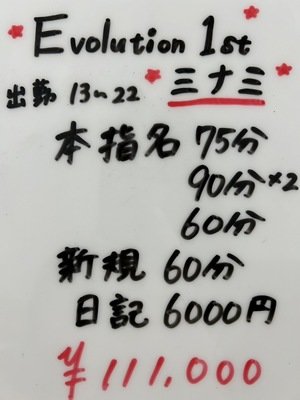 Evolution 1st
出勤 13〜22 ミナミ
本指名 75分
90分×2
60分
新規 60分
日記 6000円
¥111.000